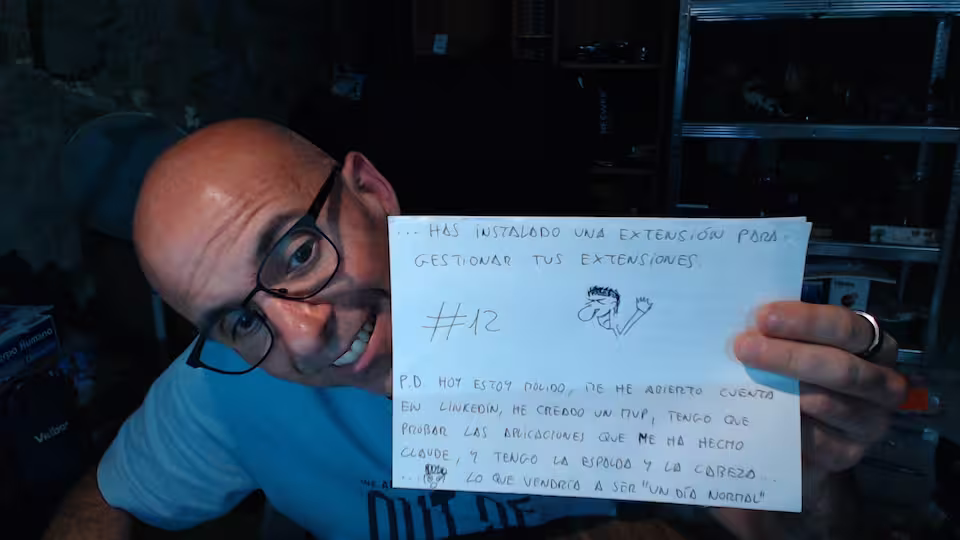 ... HAS INSTALADO UNA EXTENSIÓN PARA
GESTIONAR TUS EXTENSIONES.
#12
P.D HOY ESTOY MOLIDO, ME HE ABIERTO CUENTA
EN LINKEDIN, HE CREADO UN MVP, TENGO QUE
PROBAR LAS APLICACIONES QUE ME HA HECHO
CLAUDE, Y TENGO LA ESPALDA Y LA CABEZA...
... LO QUE VENDRÍA A SER "UN DÍA NORMAL"
OUT OF
Humano